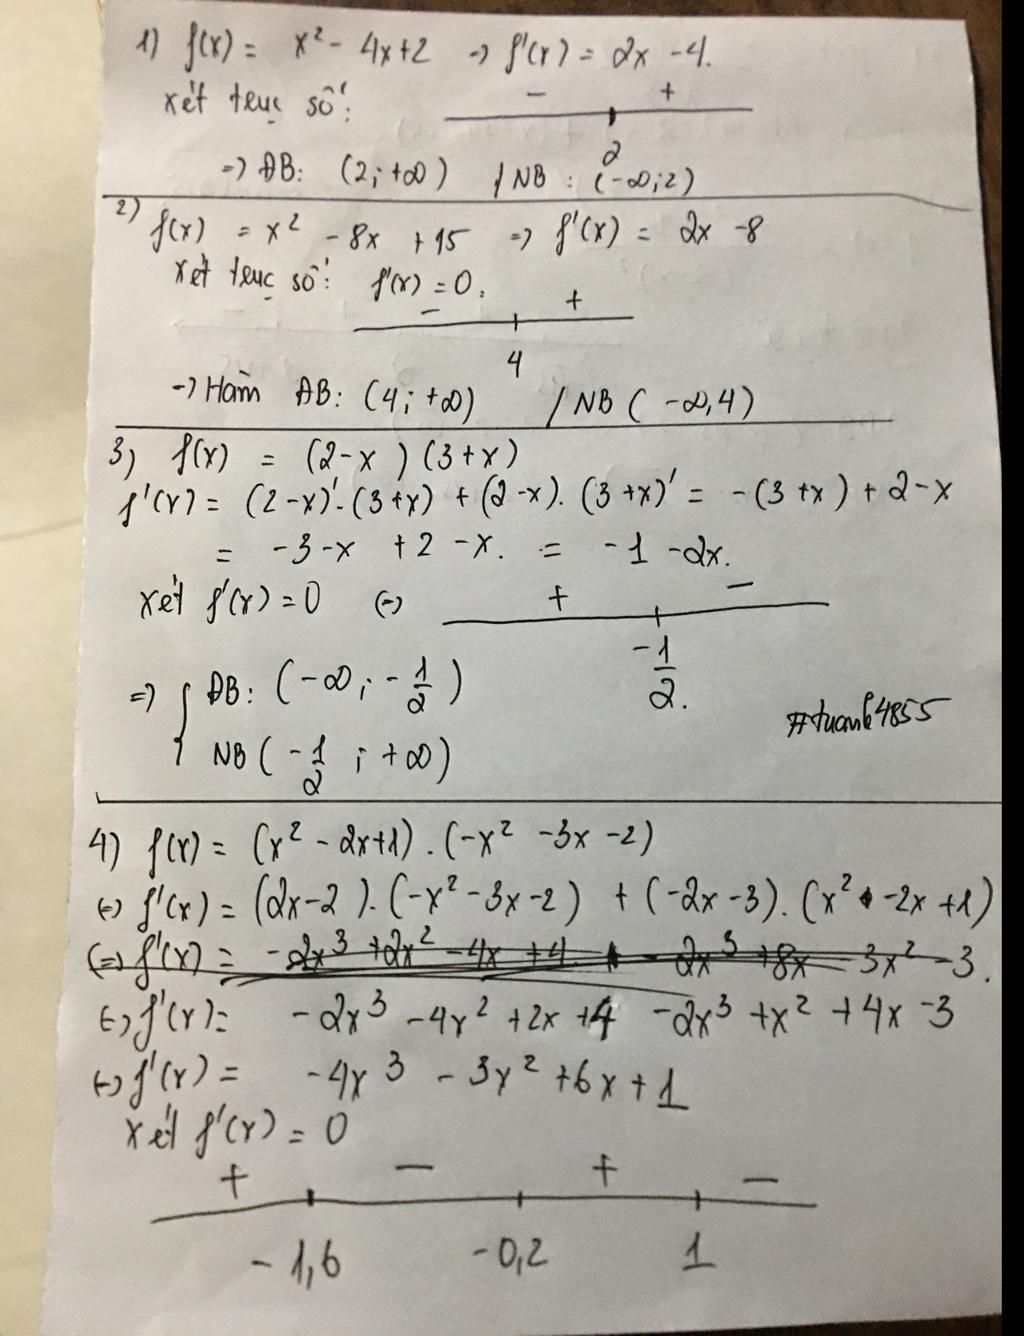 1) f(x) = x² - 4x+2 → f'(x) = 2x -4.
xét trục số:
- +
2
=> ĐB: (2; +∞) / NB : (-∞;2)
2) f(x) = x² - 8x + 15 => f'(x) = 2x -8
xét trục số: f'(x) = 0.
- +
4
-> Hàm ĐB: (4; +∞) / NB ( -∞,4)
3) f(x) = (2-x ) (3+x)
f'(x) = (2-x)'.(3+x) + (2-x). (3+x)' = -(3+x) + 2-x
= -3-x + 2 -x. = -1 -2x.
xét f'(x) = 0 (=)
+ -
-1/2.
=> { ĐB: (-∞; -1/2)
NB (-1/2 ; +∞)
#tuanh4855
4) f(x) = (x² - 2x+1) . (-x² -3x -2)
(=) f'(x) = (2x-2 ). (-x² -3x -2) + (-2x -3). (x² -2x +1)
(=) f'(x) = -2x³ +2x² -4x +4 - 2x³ +8x -3x² -3.
(=) f'(x) = -2x³ -4x² +2x +4 -2x³ +x² +4x -3
(=) f'(x) = -4x³ - 3x² +6x +1
xét f'(x) = 0
+ - + -
-1,6 -0,2 1